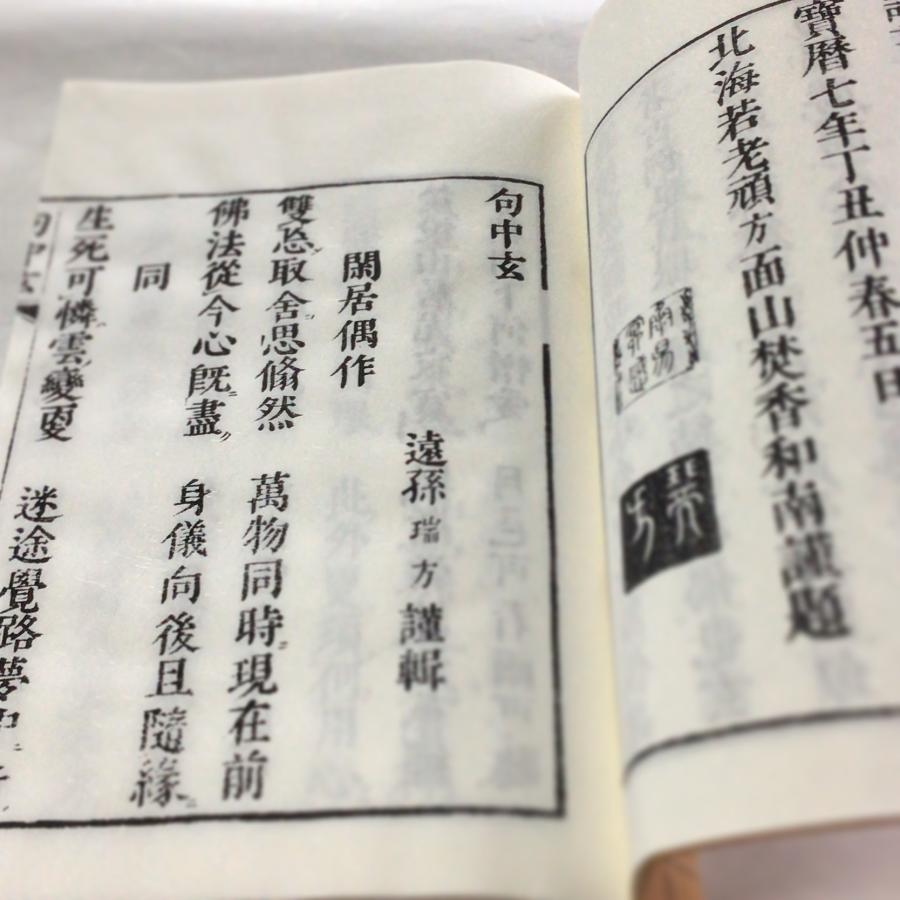 寶暦七年丁丑仲春五日
北海若老頑方面山焚香和南謹題
句中玄
遠孫瑞方謹輯
閑居偶作
雙忘取舍思翛然 萬物同時現在前
佛法從今心既盡 身儀向後且隨緣
同
生死可憐雲變更 迷途覺路夢中
句中玄